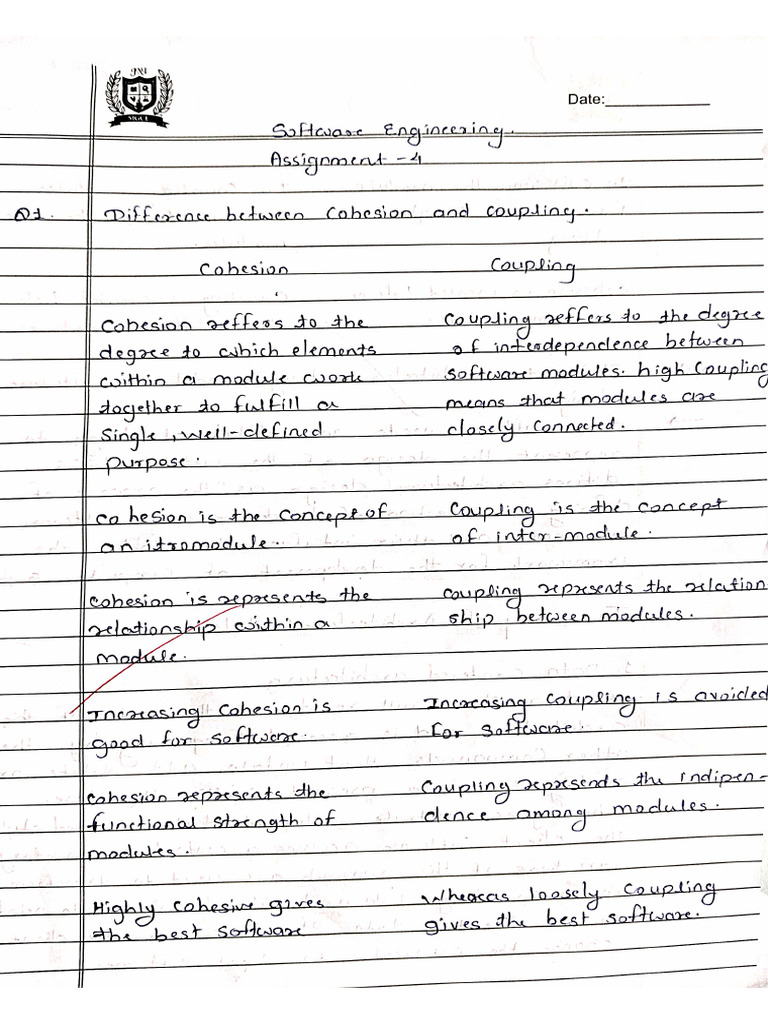 Date:____________
Software Engineering.
Assignment - 4
Q1. Difference between Cohesion and Coupling.
Cohesion Coupling
Cohesion reffers to the
degree to which elements
within a module work
together to fulfill a
single, well-defined
purpose.
Coupling reffers to the degree
of interdependence between
software modules. high Coupling
means that modules are
closely connected.
Cohesion is the concept of
an itromodule.
Coupling is the concept
of inter-module.
Cohesion is represents the
relationship within a
module.
Coupling represents the relation
ship between modules.
Increasing Cohesion is
good for software.
Increasing Coupling is avoided
for software.
Cohesion represents the
functional strength of
modules.
Coupling represends the indipen-
dence among modules.
Highly Cohesive gives
the best software
Whereas loosely Coupling
gives the best software.